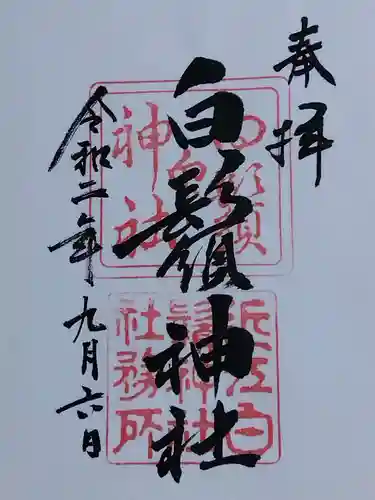 奉拝
白鬚神社
令和二年九月六日
白鬚
神社
近江白
鬚神社
社務所